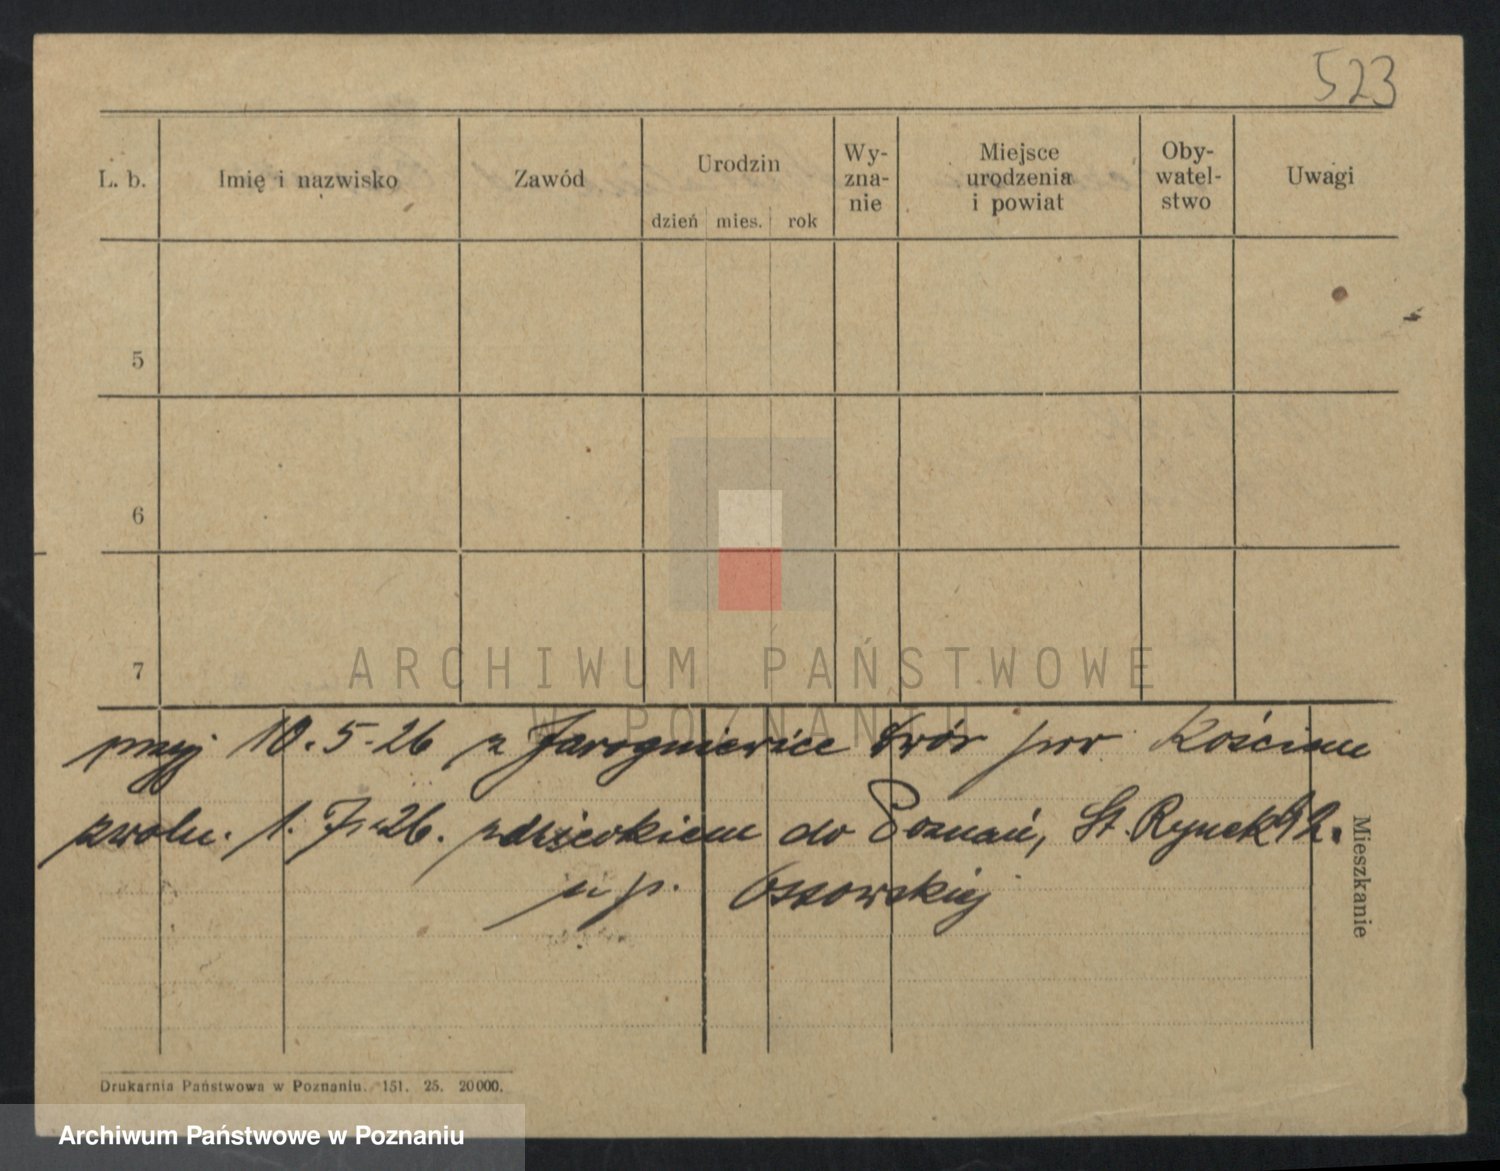 523
L. b. Imię i nazwisko Zawód Urodzin Wy-zna-nie Miejsce urodzenia i powiat Oby-watel-stwo Uwagi
dzień mies. rok
5
6
7
ARCHIWUM PAŃSTWOWE
W POZNANIU
przyj 10.5-26 z Jarogniewice dwór pow Kościan
zwoln. 1.7.26. z dzieckiem do Poznań, St. Rynek 42.
u p. Ossowskiej
Mieszkanie
Drukarnia Państwowa w Poznaniu. 151. 25. 20000.
Archiwum Państwowe w Poznaniu